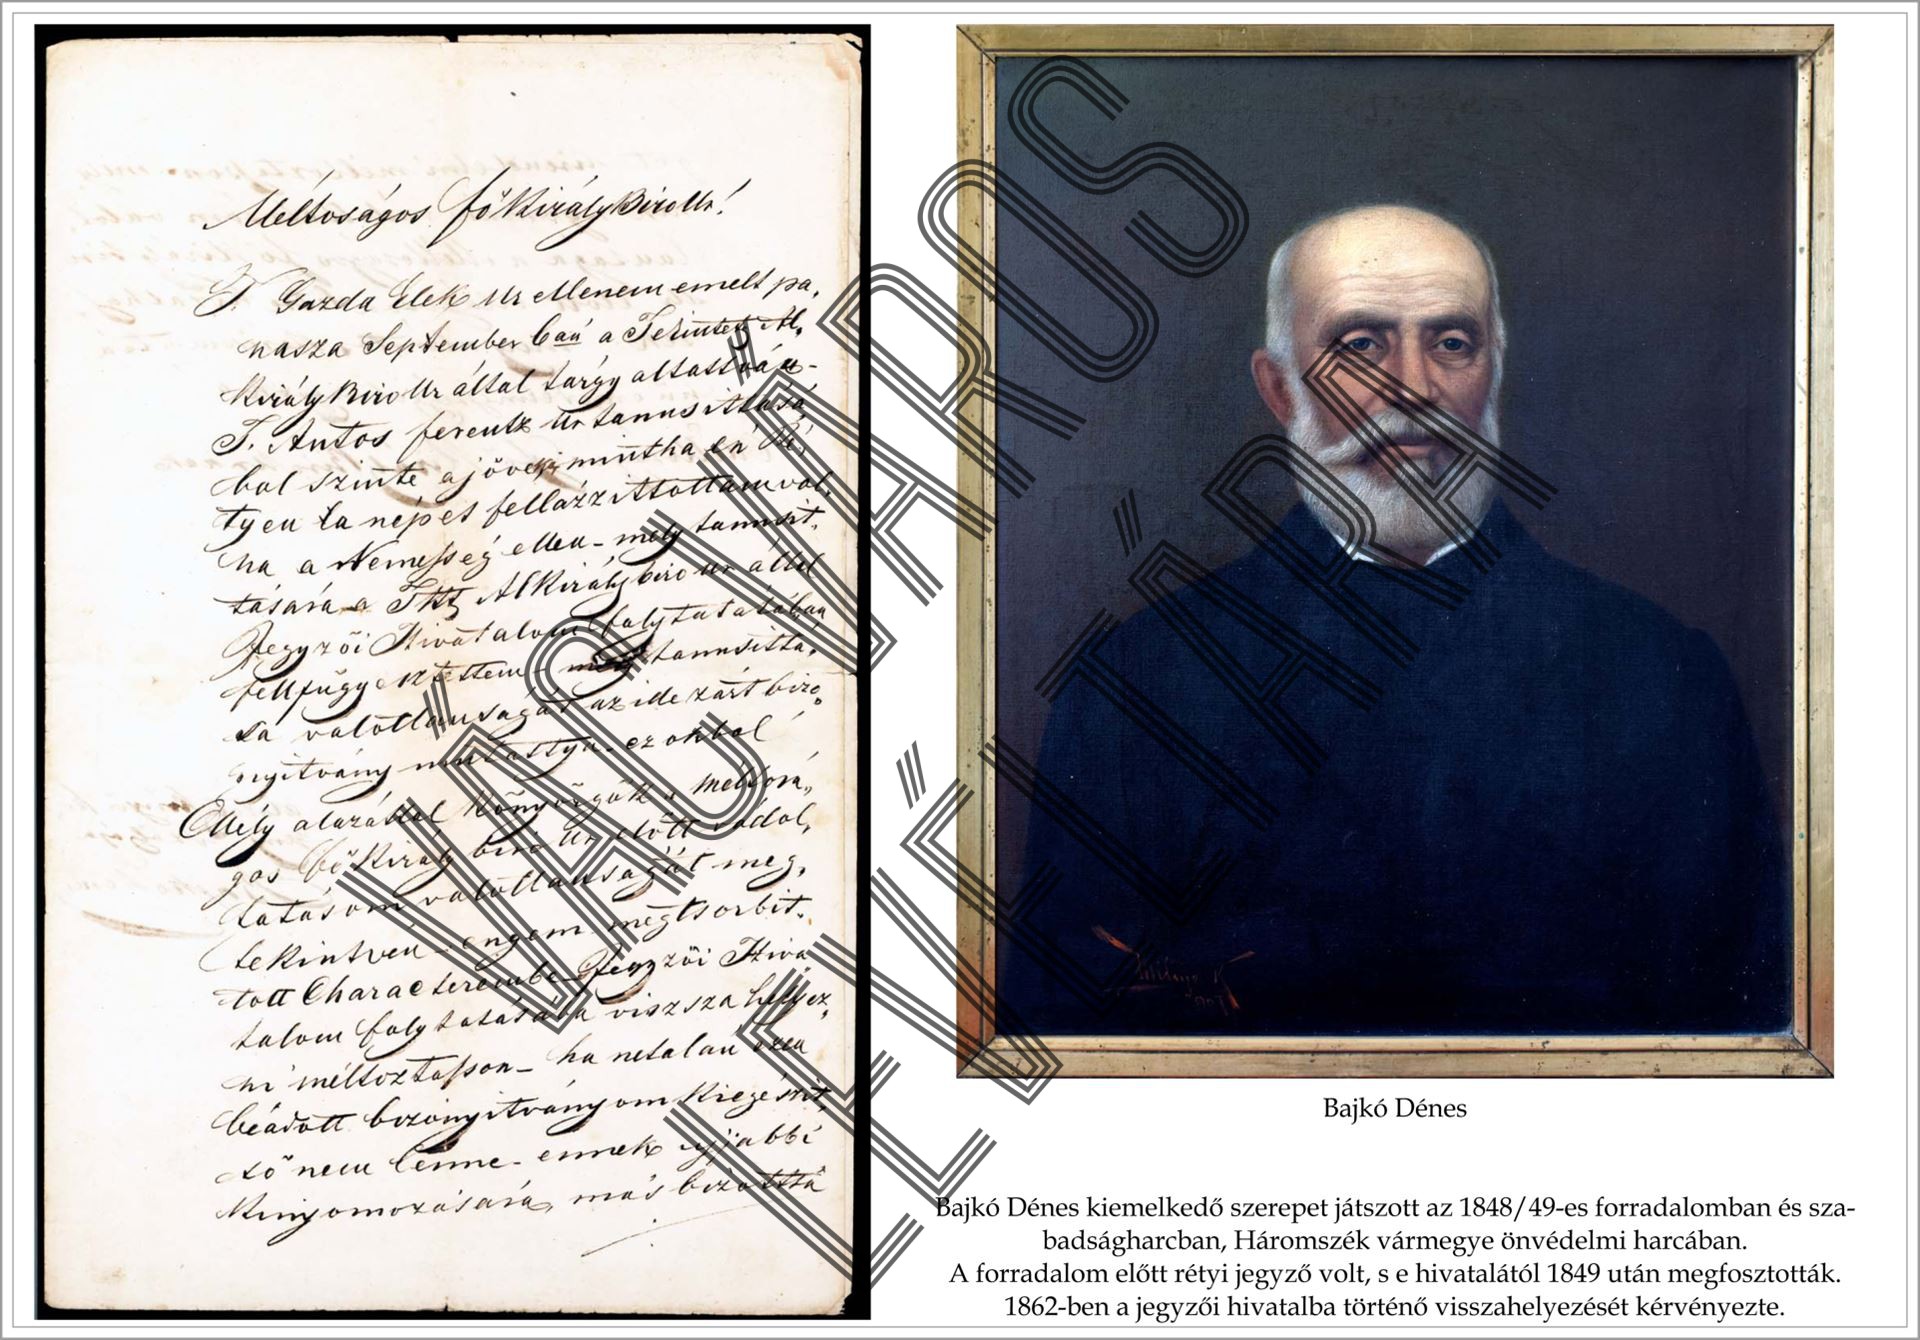 Méltoságos főKirályBiroUr!
T. Gazda Elek Ur ellenem emelt pa,
nasza September 6an a Tekintetes Al,
KirályBiroUr által tárgyaltattván-
T. Antos ferentz Ur tanusittásá
bol szinte a jöveki mintha én Ré,
tyen la népet fellázzittottam vol,
na a Nemesseg ellen - mely tanusit,
tására a Ttts AlKirálybiro Ur által
Jegyzői Hivatalom folytatatásban
fellfügyeztettem - mely tannsitta,
sa valotlanságát az ide zárt bizo,
nyitvány mutattya - ez okbol
Mély alazattal Könyörgök a méltosá,
gos főKirály biro Ur előtt vádol,
tatásom valotlanságát meg,
tekintven - engem megtsorbit,
tott Characterembe Jegyzői Hiva
talom folytatására viszsza hellyez,
ni méltoztasson - ha netalan ezen
béadott bizonyitványom Kiegészit,
tő nem lenne - ennek ujjabbi
Kinyomozására, más bizottsá
VÁC VÁROS
LEVÉLTÁRA
1907
Bajkó Dénes
Bajkó Dénes kiemelkedő szerepet játszott az 1848/49-es forradalomban és sza-
badságharcban, Háromszék vármegye önvédelmi harcában.
A forradalom előtt rétyi jegyző volt, s e hivatalától 1849 után megfosztották.
1862-ben a jegyzői hivatalba történő visszahelyezését kérvényezte.